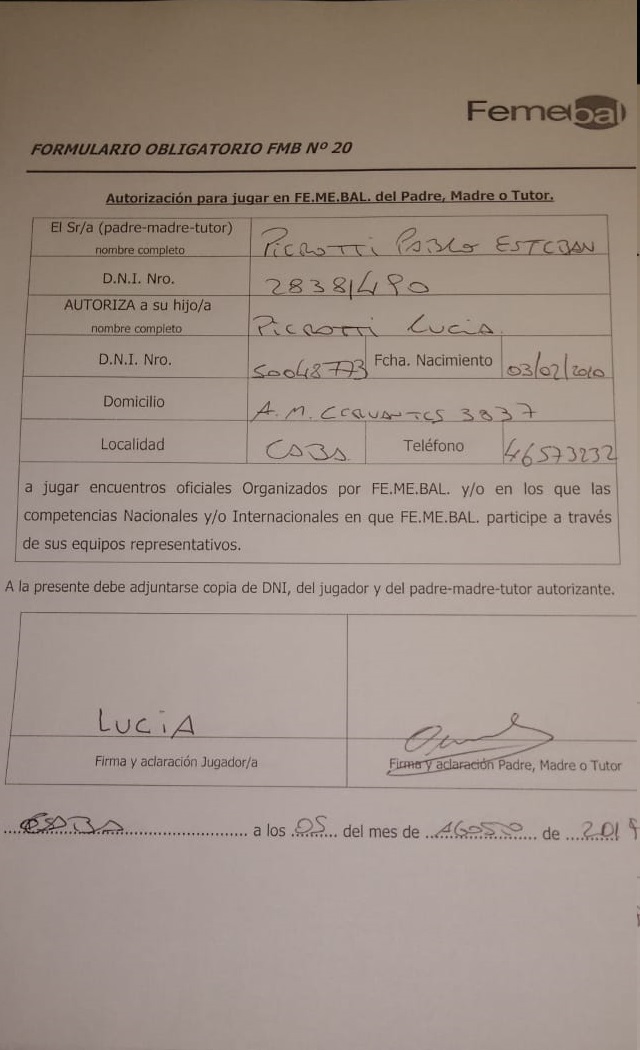 Femebal
FORMULARIO OBLIGATORIO FMB Nº 20
Autorización para jugar en FE.ME.BAL. del Padre, Madre o Tutor.
El Sr/a (padre-madre-tutor) nombre completo PIEROTTI PABLO ESTEBAN
D.N.I. Nro. 28381490
AUTORIZA a su hijo/a nombre completo PIEROTTI LUCIA
D.N.I. Nro. 50048773 Fcha. Nacimiento 03/02/2010
Domicilio A.M. CERVANTES 3837
Localidad CABA Teléfono 46573232
a jugar encuentros oficiales Organizados por FE.ME.BAL. y/o en los que las
competencias Nacionales y/o Internacionales en que FE.ME.BAL. participe a través
de sus equipos representativos.
A la presente debe adjuntarse copia de DNI, del jugador y del padre-madre-tutor autorizante.
LUCIA
Firma y aclaración Jugador/a Firma y aclaración Padre, Madre o Tutor
CABA a los 05 del mes de AGOSTO de 2019